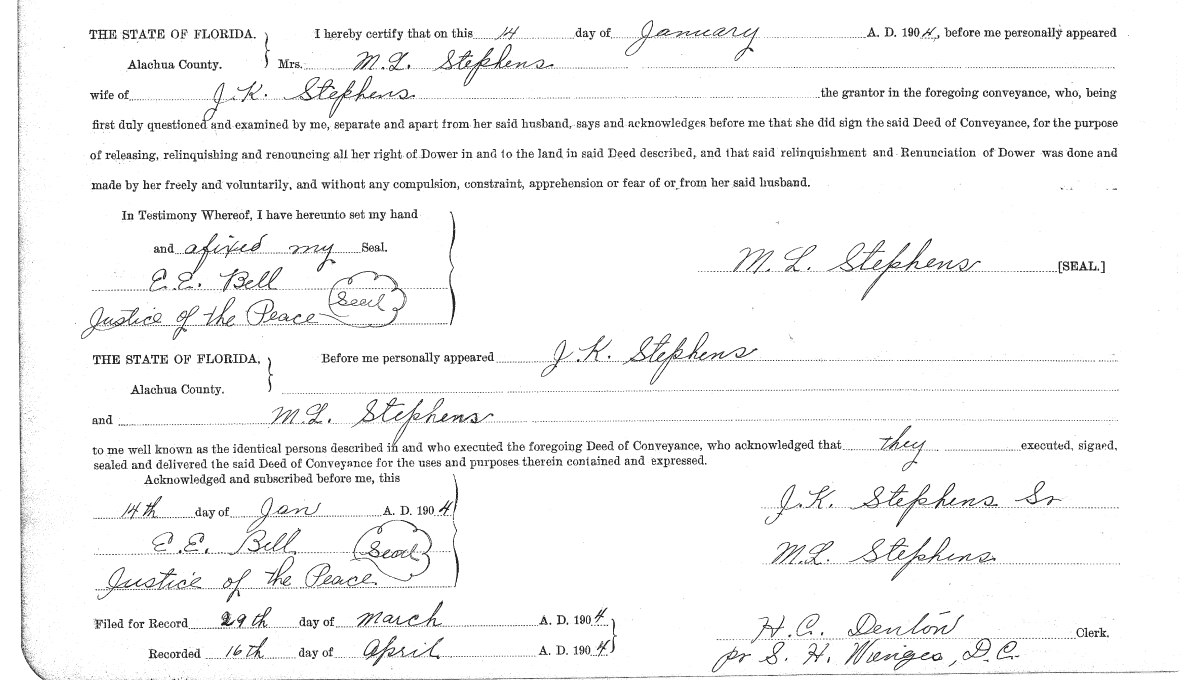 THE STATE OF FLORIDA. I hereby certify that on this 14 day of January A. D. 1904, before me personally appeared
Alachua County. Mrs. M. L. Stephens
wife of J. K. Stephens the grantor in the foregoing conveyance, who, being
first duly questioned and examined by me, separate and apart from her said husband, says and acknowledges before me that she did sign the said Deed of Conveyance, for the purpose
of releasing, relinquishing and renouncing all her right of Dower in and to the land in said Deed described, and that said relinquishment and Renunciation of Dower was done and
made by her freely and voluntarily, and without any compulsion, constraint, apprehension or fear of or from her said husband.
In Testimony Whereof, I have hereunto set my hand
and afixed my Seal.
M. L. Stephens [SEAL.]
E. E. Bell
Seal
Justice of the Peace
THE STATE OF FLORIDA, Before me personally appeared J. K. Stephens
Alachua County.
and M. L. Stephens
to me well known as the identical persons described in and who executed the foregoing Deed of Conveyance, who acknowledged that they executed, signed,
sealed and delivered the said Deed of Conveyance for the uses and purposes therein contained and expressed.
Acknowledged and subscribed before me, this
14th day of Jan A. D. 1904
J. K. Stephens Sr
E. E. Bell Seal
M. L. Stephens
Justice of the Peace
Filed for Record 29th day of March A. D. 1904
H. C. Denton Clerk.
Recorded 16th day of April A. D. 1904
pr S. H. Wienges, D. C.